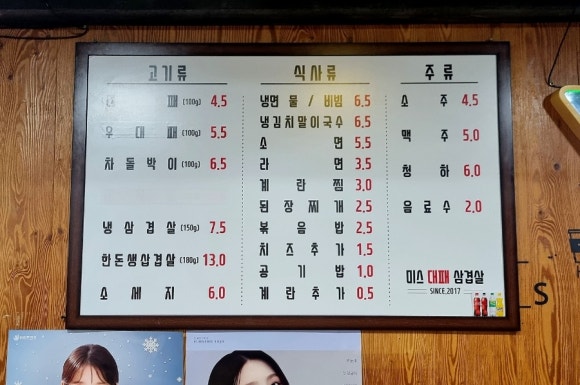 고기류
대패 (100g) 4.5
우대패 (100g) 5.5
차돌박이 (100g) 6.5
냉삼겹살 (150g) 7.5
한돈생삼겹살 (180g) 13.0
소세지 6.0
식사류
냉면 물 / 비빔 6.5
냉김치말이국수 6.5
소면 5.5
라면 3.5
계란찜 3.0
된장찌개 2.5
볶음밥 2.5
치즈추가 1.5
공기밥 1.0
계란추가 0.5
주류
소주 4.5
맥주 5.0
청하 6.0
음료수 2.0
미스 대패 삼겹살
SINCE.2017
S